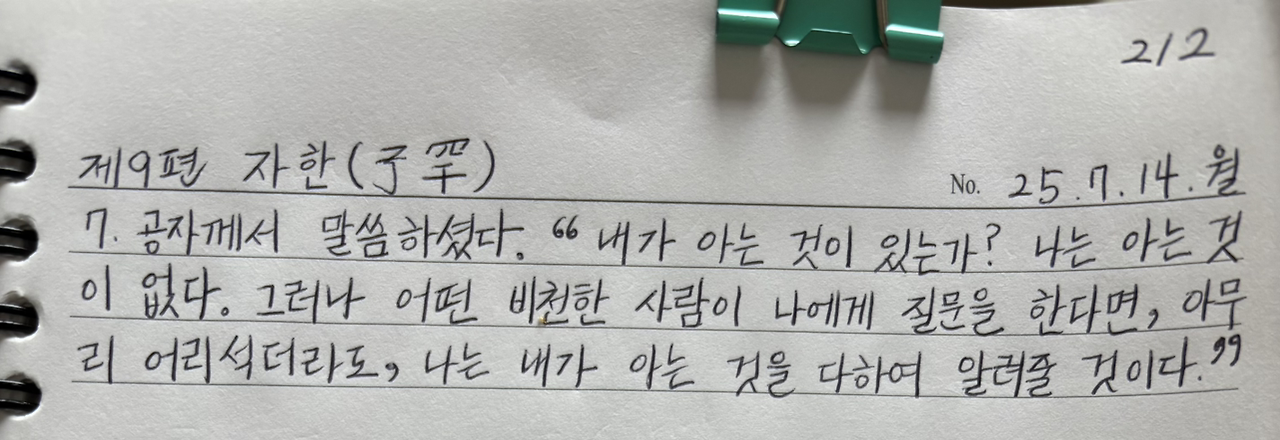 2/2
제9편 자한(子罕)
No. 25.7.14.월
7. 공자께서 말씀하셨다. “내가 아는 것이 있는가? 나는 아는 것
이 없다. 그러나 어떤 비천한 사람이 나에게 질문을 한다면, 아무
리 어리석더라도, 나는 내가 아는 것을 다하여 알려줄 것이다.”